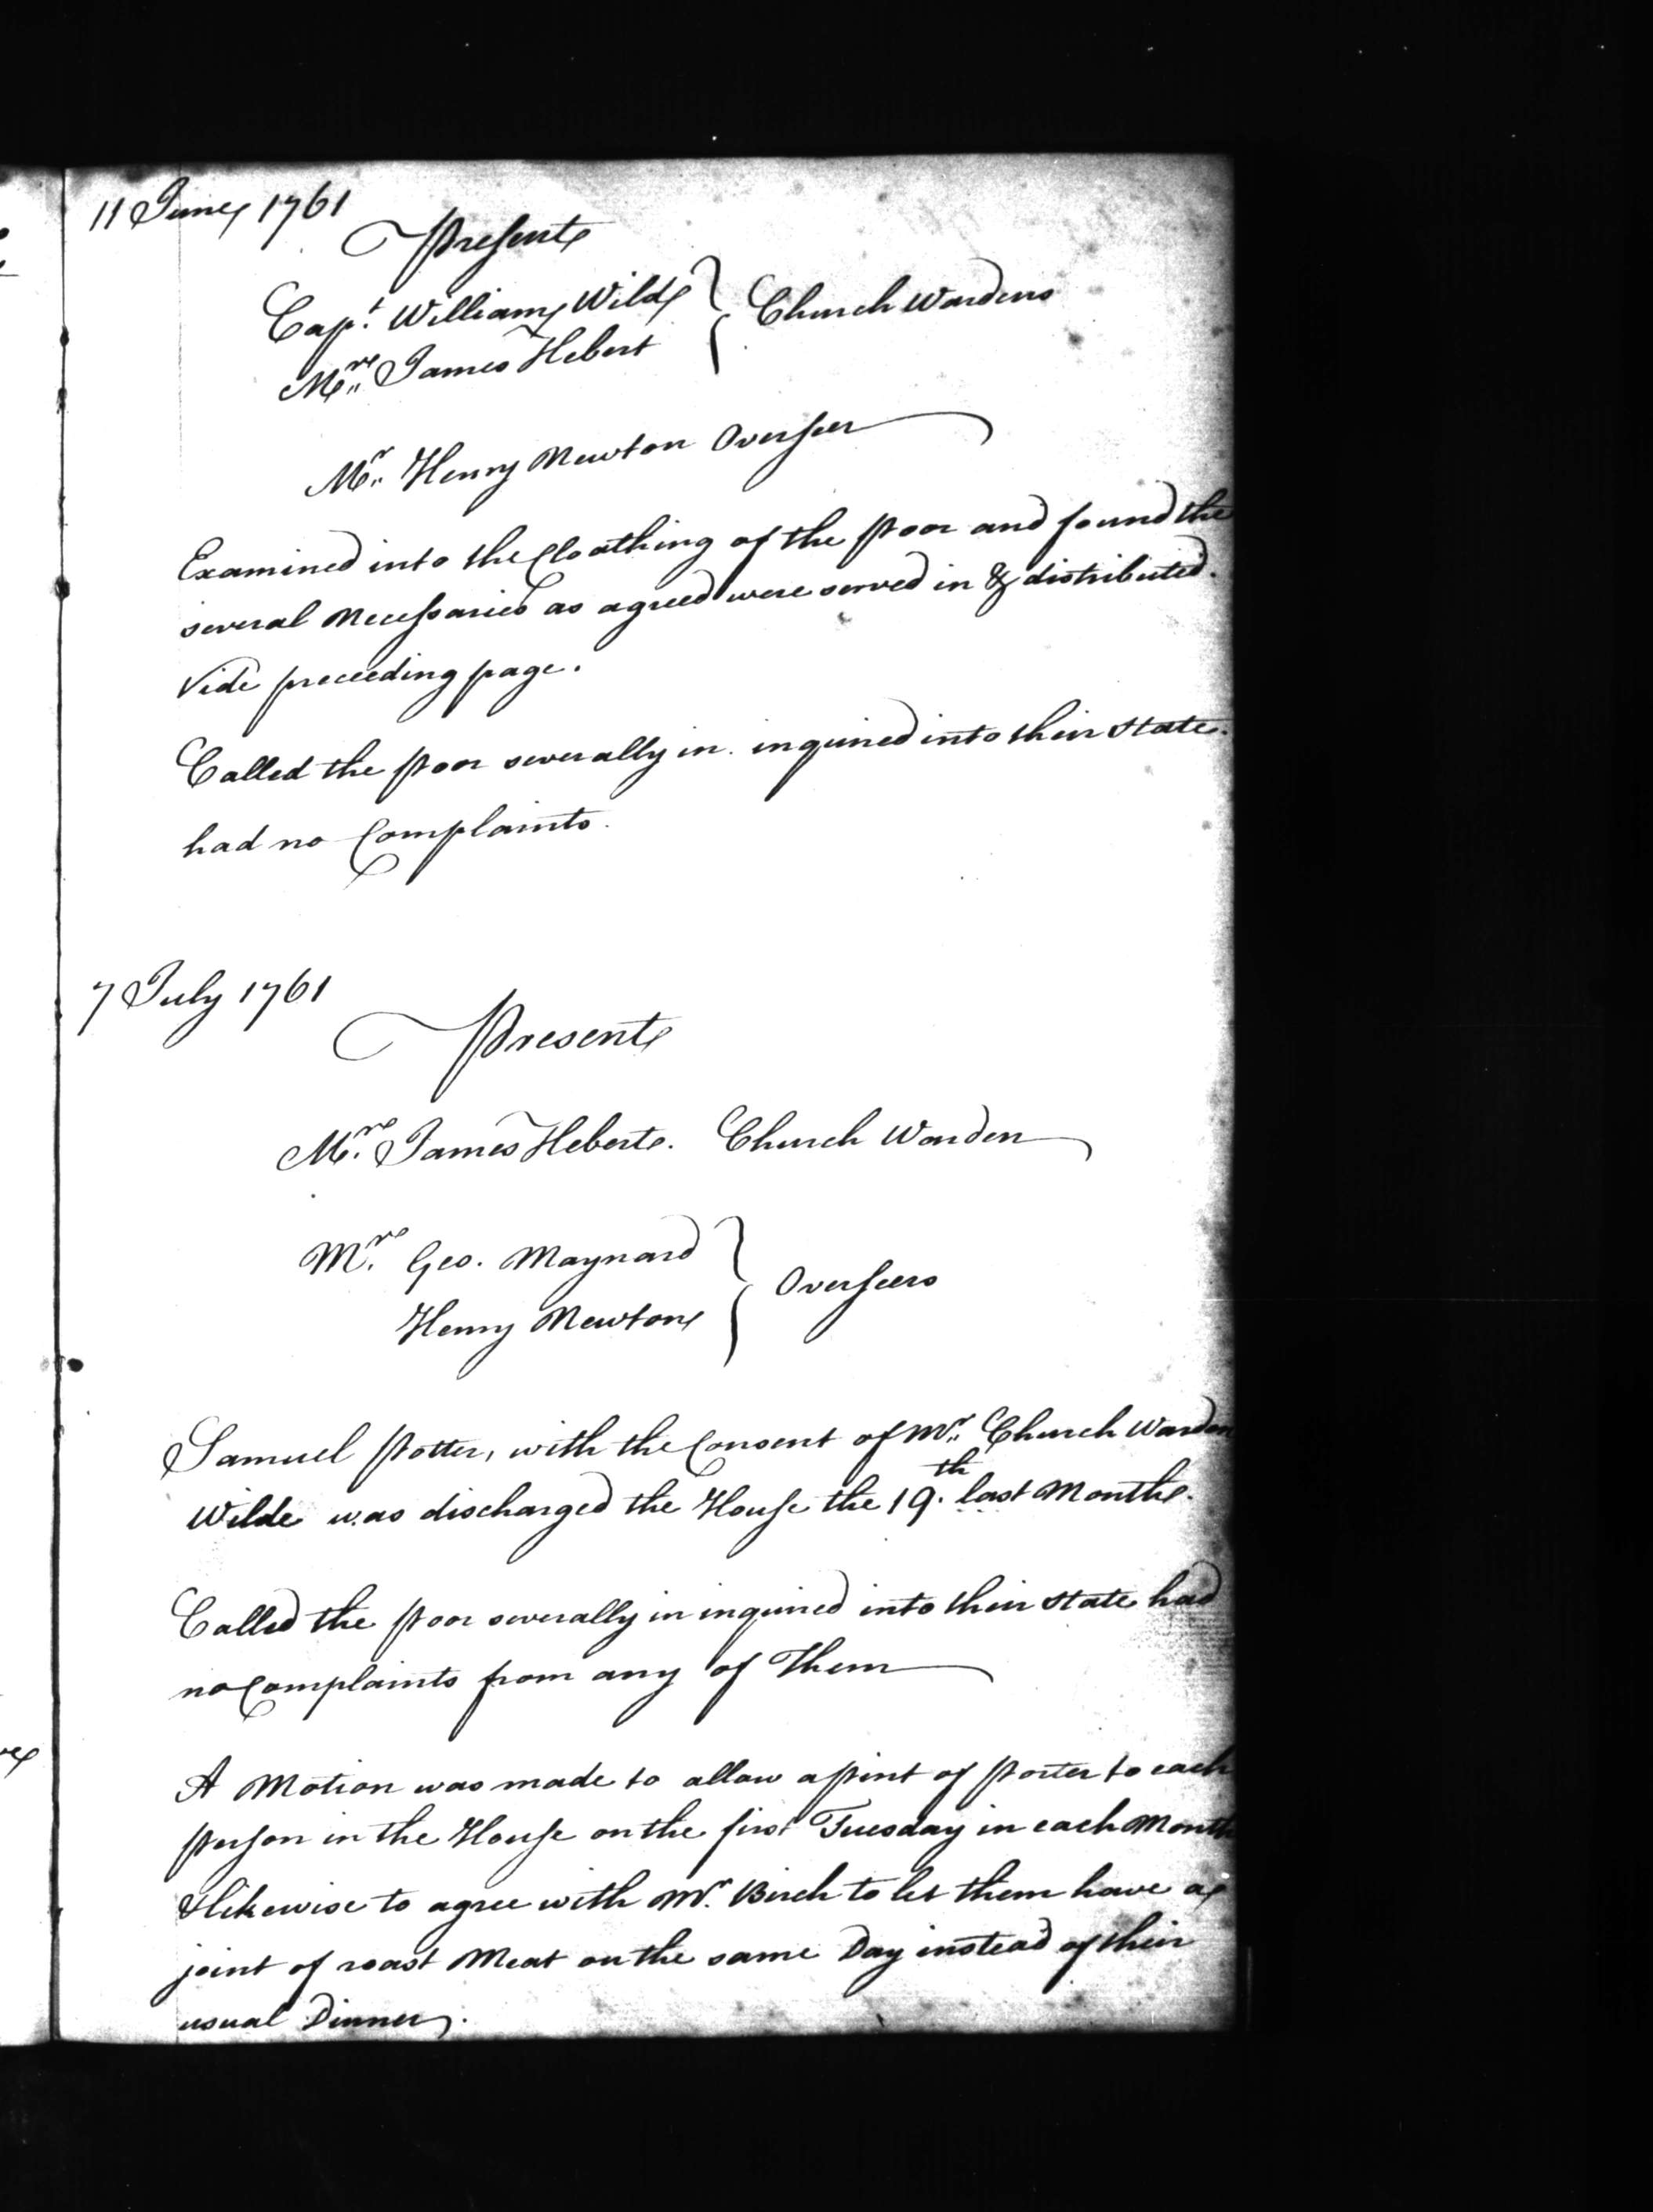 11 June 1761
Present
Capt. William Wilde } Church Wardens
Mr. James Hebert
Mr. Henry Newton Overseer
Examined into the Cloathing of the Poor and found the
several Necessaries as agreed were served in & distributed.
Vide preceeding page.
Called the Poor severally in. inquired into their State.
had no Complaints.
7 July 1761
Present
Mr. James Hebert. Church Warden
Mrs. Geo. Maynard } Overseers
Henry Newton
Samuel Potter, with the Consent of Mr. Church Warden
Wilde was discharged the House the 19th. last Month.
Called the Poor severally in inquired into their State had
no Complaints from any of Them
A Motion was made to allow a Pint of Porter to each
Person in the House on the first Tuesday in each Month
& likewise to agree with Mr. Birch to let them have a
joint of roast Meat on the same Day instead of their
usual Dinner.